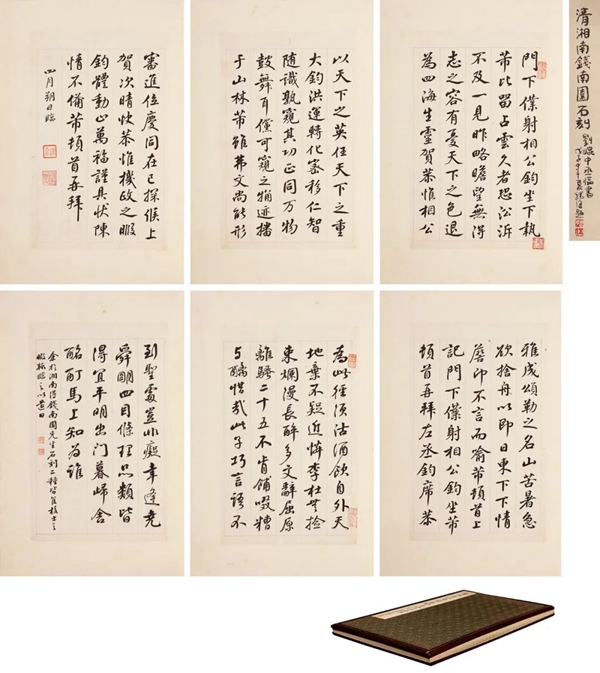 清湘南錢南園石刻
門下僕射相公鈞坐下執
芾比留占雲久者恐沿泝
不及一見昨略瞻望無得
志之容有憂天下之色退
為四海生靈賀恭惟相公
以天下之英任天下之重
大鈞洪運轉化密移仁智
隨識孰窺其功正同万物
鼓舞耳僅可窺之猶迹播
于山林芾雖弗文尚能形
審進位慶同在已探候上
賀次晴快恭惟機政之暇
鈞體動止萬福謹具狀陳
情不備芾頓首再拜
四月朔日臨
雅成頌勒之名山苦暑急
欲捨舟以即日東下下情
詹仰不言而喻芾頓首上
記門下僕射相公鈞坐芾
頓首再拜左丞鈞席恭
為此徑須沽酒飲自外天
地棄不疑近憐李杜無撿
束爛漫長醉多文辭屈原
離騷二十五不肯餔啜糟
与醨惜哉此子巧言語不
到聖處寧非癡幸逢堯
舜明四目條理品類皆
得宜平明出门暮歸舍
酩酊馬上知為誰
余於湘南得錢南園先生石刻二種